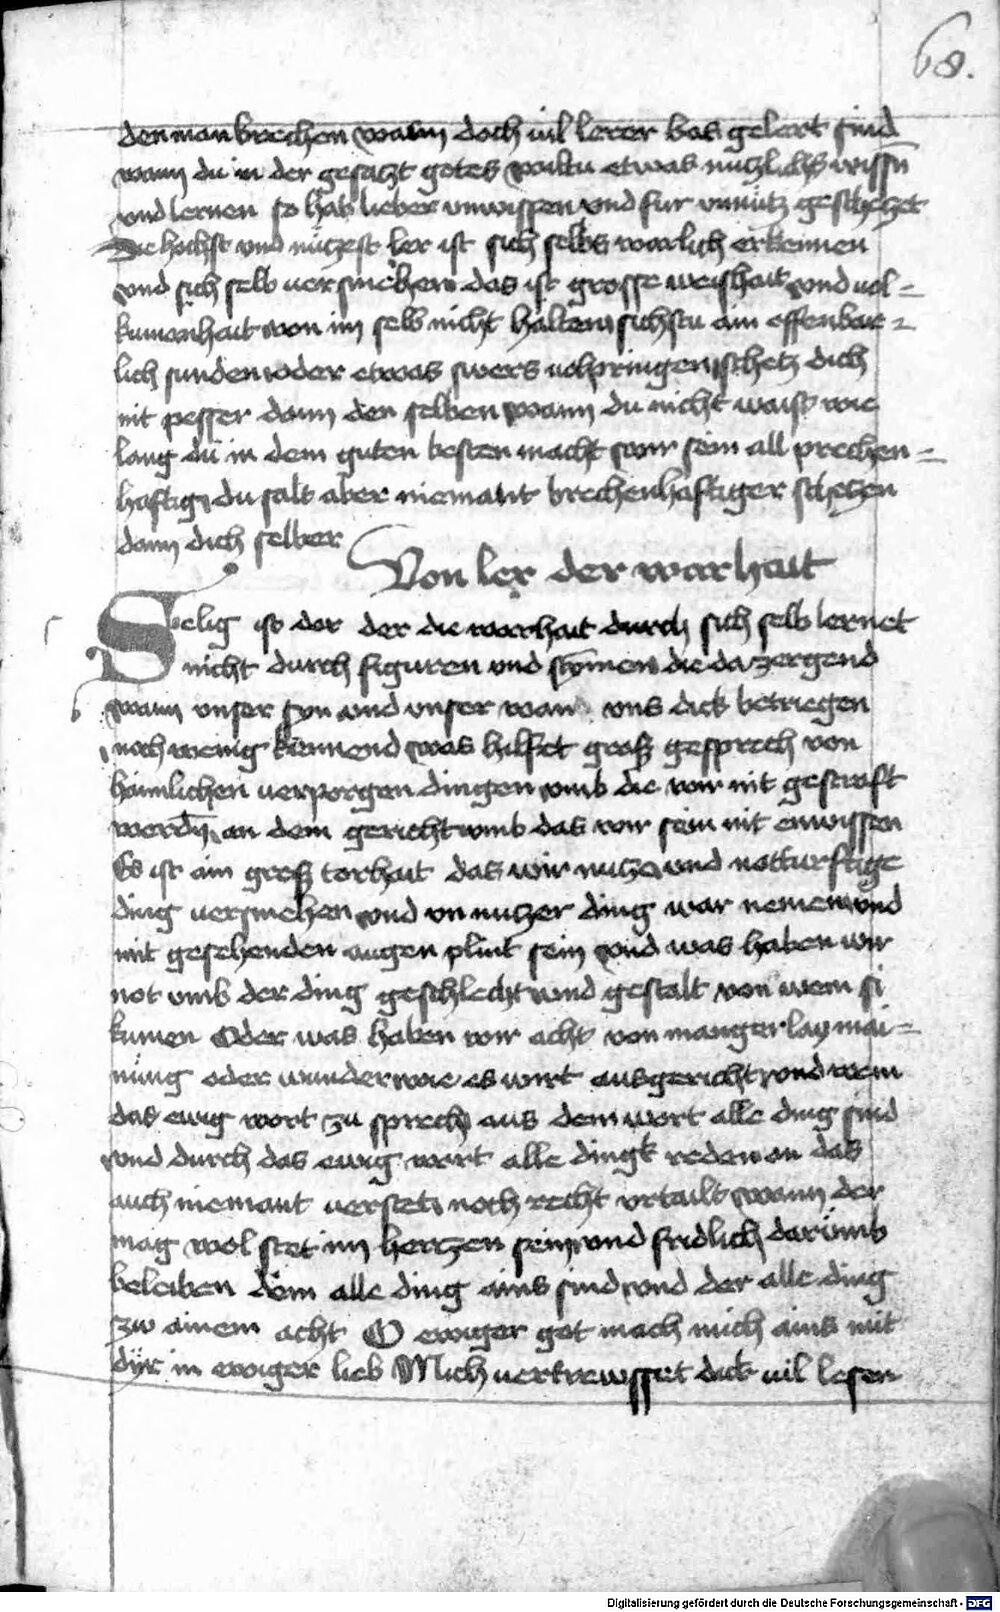 68.
den man brechen wann doch vil lerer bas gelert sind
wann du in der gesaczt gotes wiltu etwas nuczlichs wissn̄
vnd lernen so hab lieber vnwissen vnd fur vnnücz gescheczet
Die hochst vnd nüczest ler ist sich selbs warlich erkennen
vnd sich selb versmehen das ist grosse weishait vnd vol=
kumenhait von im selb nicht halten sichstu ain offenbar=
lich sunden oder etwas swers volpringen schecz dich
nit pesser dann den selben wann du nicht waist wie
lang du in dem guten besten macht wir sein all prechen=
haftig du salt aber niemant brechenhaftiger scheczen
dann dich selber
Von ler der warhait
Selig ist der der die warhait durch sich selb lernet
nicht durch figuren vnd stȳmen die da zergend
wann vnser syn vnd vnser wan vns dick betriegen
noch wenig kennend was hilfet groß gesprech von
haimlichen verporgen dingen vmb die wir nit gestroft
werdn̄ an dem gericht vmb das wir sein nit enwissen
Es ist ain groß torhait das wir nucze vnd notturftige
ding versmehen vnd vn nuczer ding war nemen vnd
mit gesehenden augen plint sein vnd was haben wir
not vmb der ding geschlecht vnd gestalt von wem si
kumen Oder was haben wir acht von manger lay mai=
nüng oder wunder wie es wirt ausgericht vnd wem
das ewig wort zu sprech aus dem wort alle ding sind
vnd durch das ewig wort alle dingk reden on das
auch niemant verstet noch recht vrtailt wann der
mag wol stet im herczen sein vnd fridlich darümb
beleiben dem alle ding ains sind vnd der alle ding
zw ainem acht O ewiger got mach mich ains mit
dyr in ewiger lieb Mich vertrewsset dick vil lesen
Digitalisierung gefördert durch die Deutsche Forschungsgemeinschaft - DFG